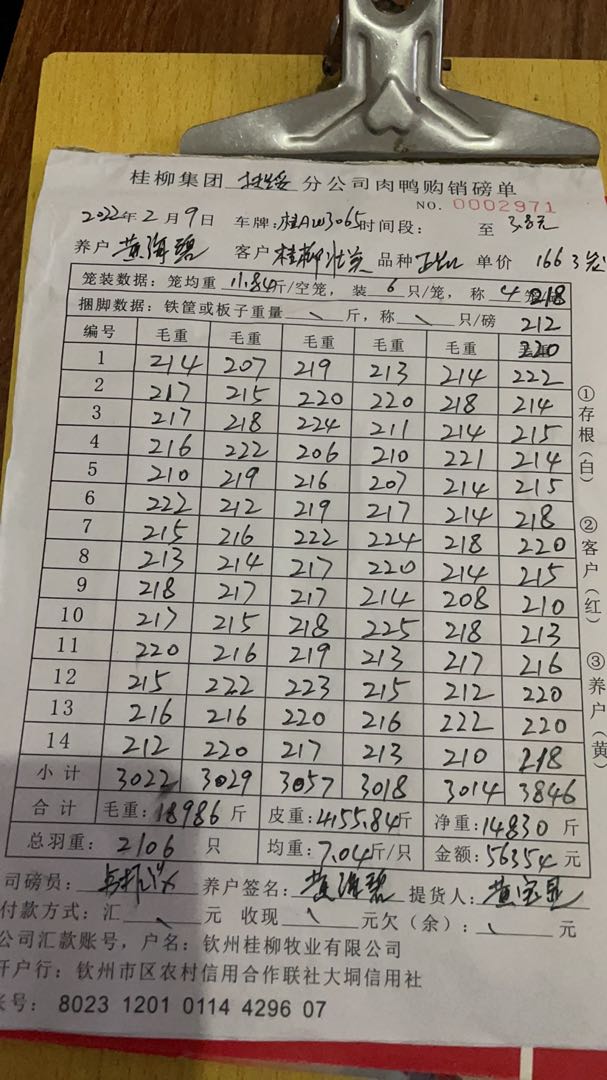 桂柳集团 扶绥 分公司肉鸭购销磅单
NO. 0002971
2022年2月9日 车牌:桂AW3065 时间段: 至 3.8元
养户 黄海碧 客户 桂柳 品种 单价 166
笼装数据:笼均重 11.84斤/空笼,装 6 只/笼,称 4 218
捆脚数据:铁筐或板子重量 \ 斤,称 \ 只/磅 212
编号 毛重 毛重 毛重 毛重 毛重 220
1 214 207 219 213 214 222
2 217 215 220 220 218 214
3 217 218 224 211 214 215
4 216 222 206 210 221 214
5 210 219 216 207 214 215
6 222 212 219 217 214 218
7 215 216 222 224 218 220
8 213 214 217 220 214 215
9 218 217 217 214 208 210
10 217 215 218 225 218 213
11 220 216 219 213 217 216
12 215 222 223 215 212 220
13 216 216 220 216 222 220
14 212 220 217 213 210 218
小计 3022 3029 3057 3018 3014 3846
合计 毛重:18986 斤 皮重:4155.84斤 净重:14830 斤
总羽重: 2106 只 均重:7.04斤/只 金额:56354 元
司磅员: 养户签名:黄海碧 提货人:黄宝显
付款方式:汇 \ 元 收现 \ 元欠(余): \ 元
公司汇款账号,户名:钦州桂柳牧业有限公司
开户行:钦州市区农村信用合作联社大垌信用社
账号: 8023 1201 0114 4296 07
①存根(白)
②客户(红)
③养户(黄)